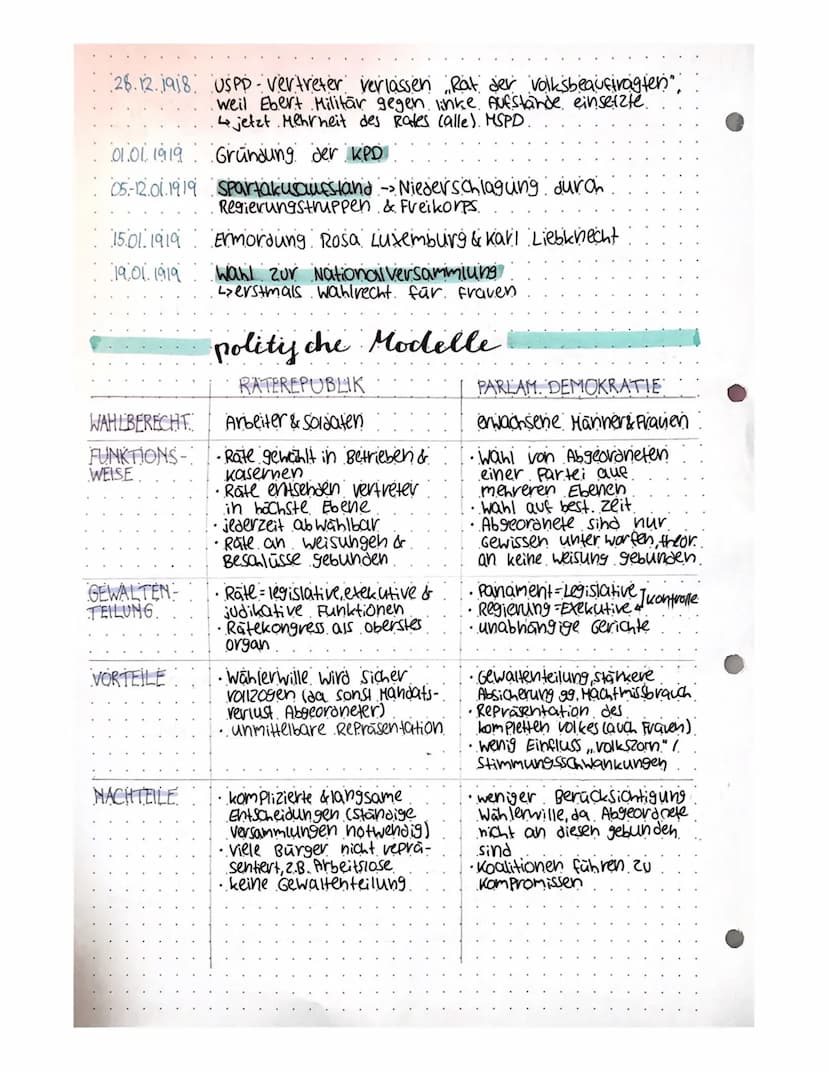 28.12.1918 USPD-Vertreter verlassen „Rat der Volksbeauftragten",
weil Ebert Militär gegen linke Aufstände einsetzte
↳ jetzt Mehrheit des Rates (alle) MSPD
01.01.1919 Gründung der KPD
05.-12.01.1919 Spartakusaufstand → Niederschlagung durch
Regierungstruppen & Freikorps
15.01.1919 Ermordung Rosa Luxemburg & Karl Liebknecht
19.01.1919 Wahl zur Nationalversammlung
↳ erstmals Wahlrecht für Frauen
politische Modelle
RÄTEREPUBLIK
PARLAM. DEMOKRATIE
WAHLBERECHT.
Arbeiter & Soldaten
erwachsene Männer & Frauen
FUNKTIONS-
WEISE
· Räte gewählt in Betrieben &
Kasernen
· Räte entsenden Vertreter
in höchste Ebene
· jederzeit abwählbar
· Räte an Weisungen &
Beschlüsse gebunden
· Wahl von Abgeordneten
einer Partei auf
mehreren Ebenen
· Wahl auf best. Zeit
· Abgeordnete sind nur
Gewissen unterworfen, theor.
an keine Weisung gebunden
GEWALTEN-
TEILUNG
· Räte = legislative, exekutive &
judikative Funktionen
· Rätekongress als oberstes
Organ
· Parlament = Legislative
· Regierung = Exekutive
Kontrolle
· unabhängige Gerichte
VORTEILE
· Wählerwille wird sicher
vollzogen (da sonst Mandats-
verlust Abgeordneter)
· unmittelbare Repräsentation
· Gewaltenteilung, stärkere
Absicherung gg. Machtmissbrauch
· Repräsentation des
kompletten Volkes (auch Frauen)
· wenig Einfluss „Volkszorn" /
Stimmungsschwankungen
NACHTEILE
· komplizierte & langsame
Entscheidungen (ständige
Versammlungen notwendig)
· viele Bürger nicht reprä-
sentiert, z.B. Arbeitslose
· keine Gewaltenteilung
· weniger Berücksichtigung
Wählerwille, da Abgeordnete
nicht an diesen gebunden
sind
· Koalitionen führen zu
Kompromissen